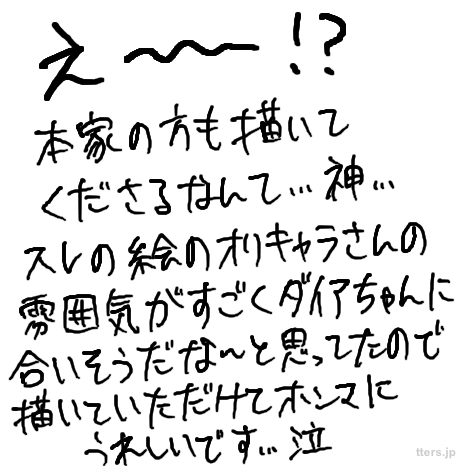 え〜〜!?
本家の方も描いて
くださるなんて…神…
スレの絵のオリキャラさんの
雰囲気がすごくダイアちゃんに
合いそうだな〜と思ってたので
描いていただけてホンマに
うれしいです…泣
tters.jp